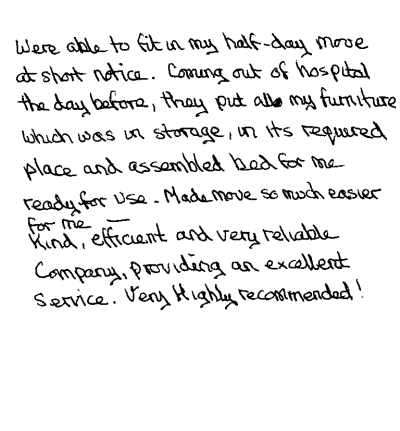 Were able to fit in my half-day move
at short notice. Coming out of hospital
the day before, they put all my furniture
which was in storage, in its required
place and assembled bed for me
ready for use. Made move so much easier
for me —
Kind, efficient and very reliable
Company, providing an excellent
Service. Very Highly recommended!